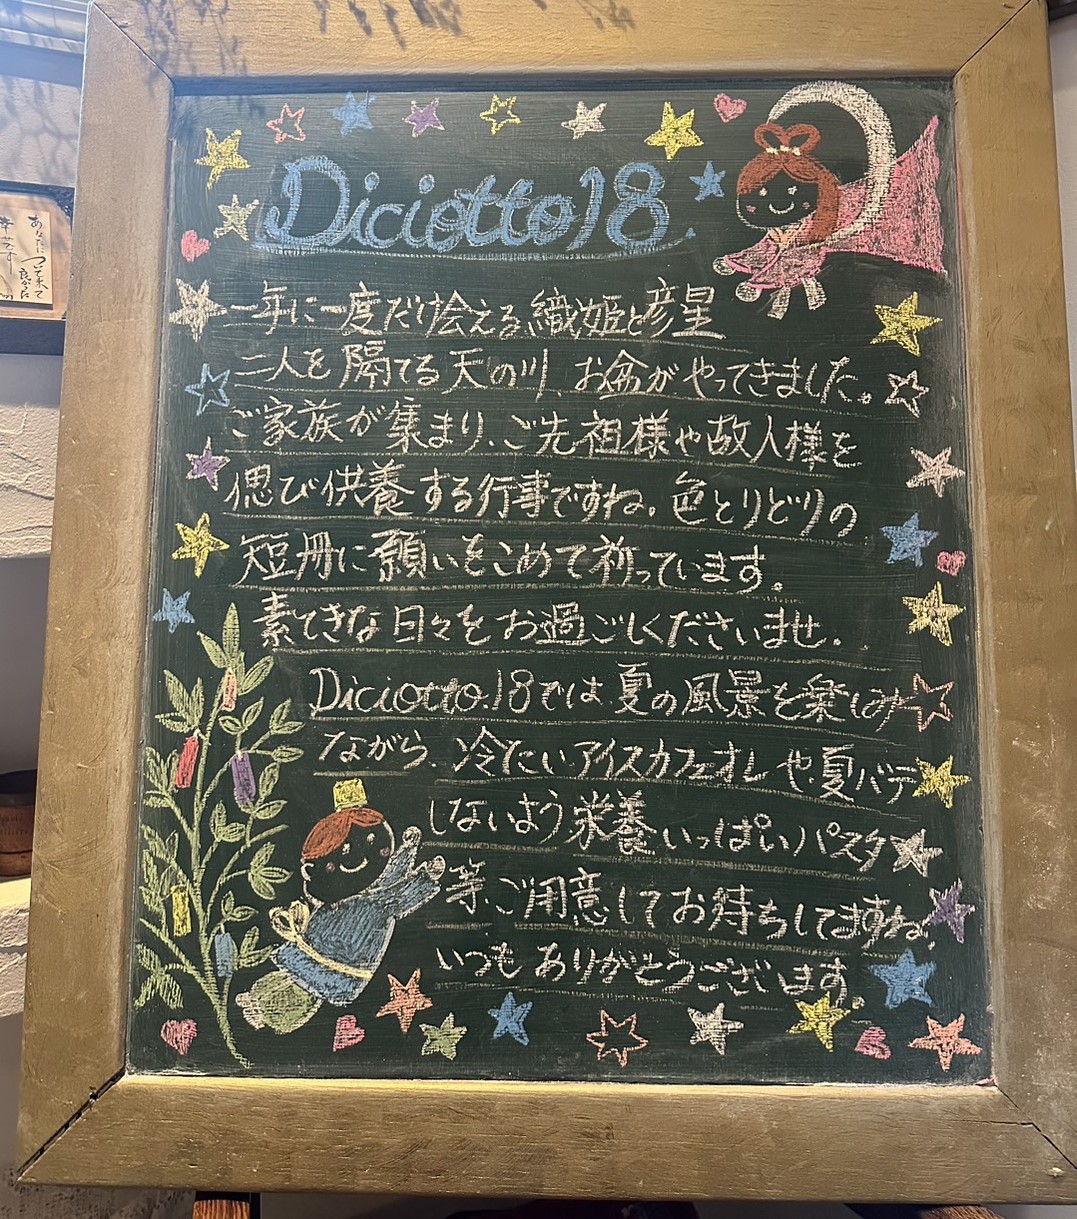 Diciotto18.
一年に一度だけ会える織姫と彦星
二人を隔てる天の川、お盆がやってきました。
ご家族が集まり、ご先祖様や故人様を
偲び供養する行事ですね。色とりどりの
短冊に願いをこめて祈っています。
素てきな日々をお過ごしくださいませ。
Diciotto.18では夏の風景を楽しみ
ながら、冷たいアイスカフェオレや夏バテ
しないよう栄養いっぱいパスタ
等ご用意してお待ちしてますね。
いつもありがとうございます。
あなたに
ついて来て
良かった